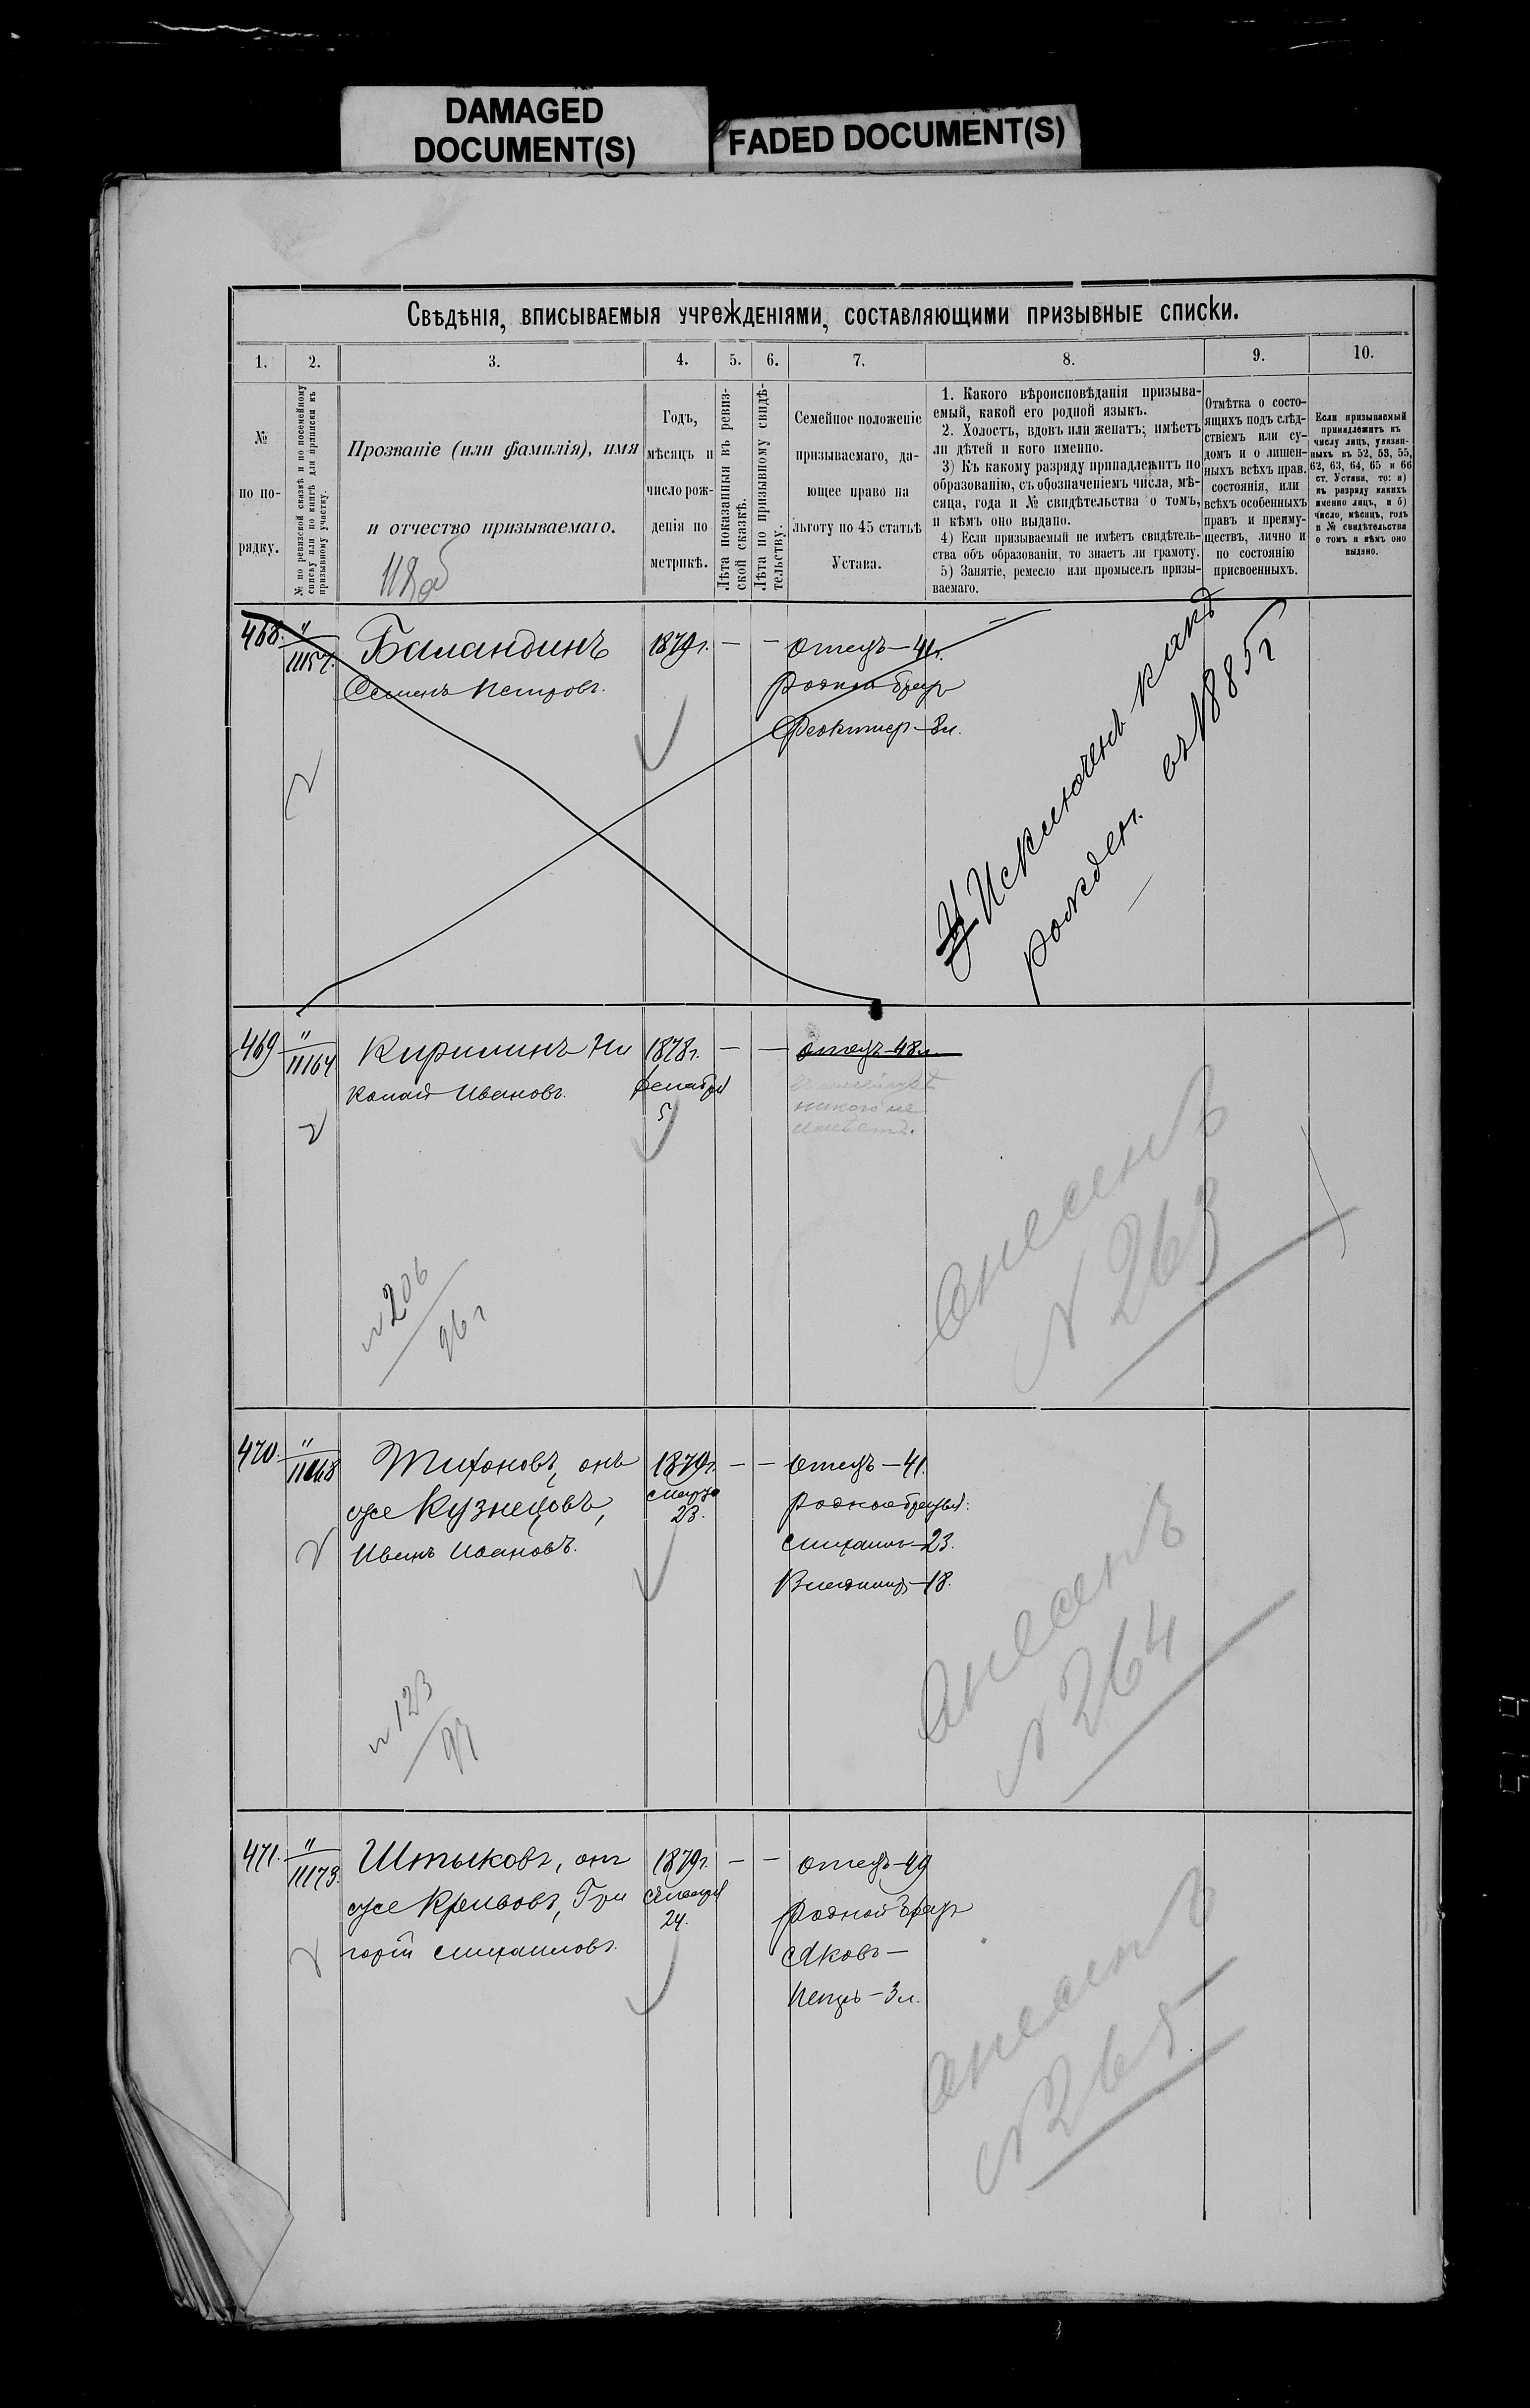 DAMAGED
DOCUMENT(S)
FADED DOCUMENT(S)
Свѣдѣнія, вписываемыя учрежденіями, составляющими призывные списки.
1.
2.
3.
4.
5.
6.
7.
8.
9.
10.
№
по по-
рядку.
№ по ревизской сказкѣ и по посемейному
списку или по книгѣ для приписки къ
призывному участку.
Прозваніе (или фамилія), имя
и отчество призываемаго.
Годъ,
мѣсяцъ и
число рож-
денія по
метрикѣ.
Лѣта показанныя въ ревиз-
ской сказкѣ.
Лѣта по призывному свидѣ-
тельству.
Семейное положеніе
призываемаго, да-
ющее право на
льготу по 45 статьѣ
Устава.
1. Какого вѣроисповѣданія призыва-
емый, какой его родной языкъ.
2. Холостъ, вдовъ или женатъ; имѣетъ
ли дѣтей и кого именно.
3) Къ какому разряду принадлежитъ по
образованію, съ обозначеніемъ числа, мѣ-
сяца, года и № свидѣтельства о томъ,
и кѣмъ оно выдано.
4) Если призываемый не имѣетъ свидѣтель-
ства объ образованіи, то знаетъ ли грамоту.
5) Занятіе, ремесло или промыселъ призы-
ваемаго.
Отмѣтка о состо-
ящихъ подъ слѣд-
ствіемъ или су-
домъ и о лишен-
ныхъ всѣхъ прав.
состоянія, или
всѣхъ особенныхъ
правъ и преиму-
ществъ, лично и
по состоянію
присвоенныхъ.
Если призываемый
принадлежитъ къ
числу лицъ, указан-
ныхъ въ 52, 53, 55,
62, 63, 64, 65 и 66
ст. Устава, то: а)
къ разряду какихъ
именно лицъ, и б)
число, мѣсяцъ, годъ
и № свидѣтельства
о томъ и кѣмъ оно
выдано.
468. " 11157. Баландинъ 1879 г. — — отецъ — 41.
Семенъ Петровъ. родной братъ
— 3 л.
Исключенъ какъ
рожден. въ 1885 г
469 " 11164 Кирилинъ Ни 1878 г. — — отецъ 48 л.
колай Ивановъ. декабря
5
никого не
имѣетъ.
внесенъ
№ 263
№ 206
96 г
470. " 11168 Тихоновъ, онъ 1879 г. — — отецъ — 41.
же Кузнецовъ, марта родные братья:
23. Михаилъ — 23.
Иванъ Ивановъ. Владимиръ — 18.
внесенъ
№ 264
№ 123
97
471. " 11173. Штыковъ, онъ 1879 г. — — отецъ — 49
же Кривовъ, Гри января родной братъ
24.
горій Михаиловъ. Яковъ —
Петръ — 3 л.
внесенъ
№ 265